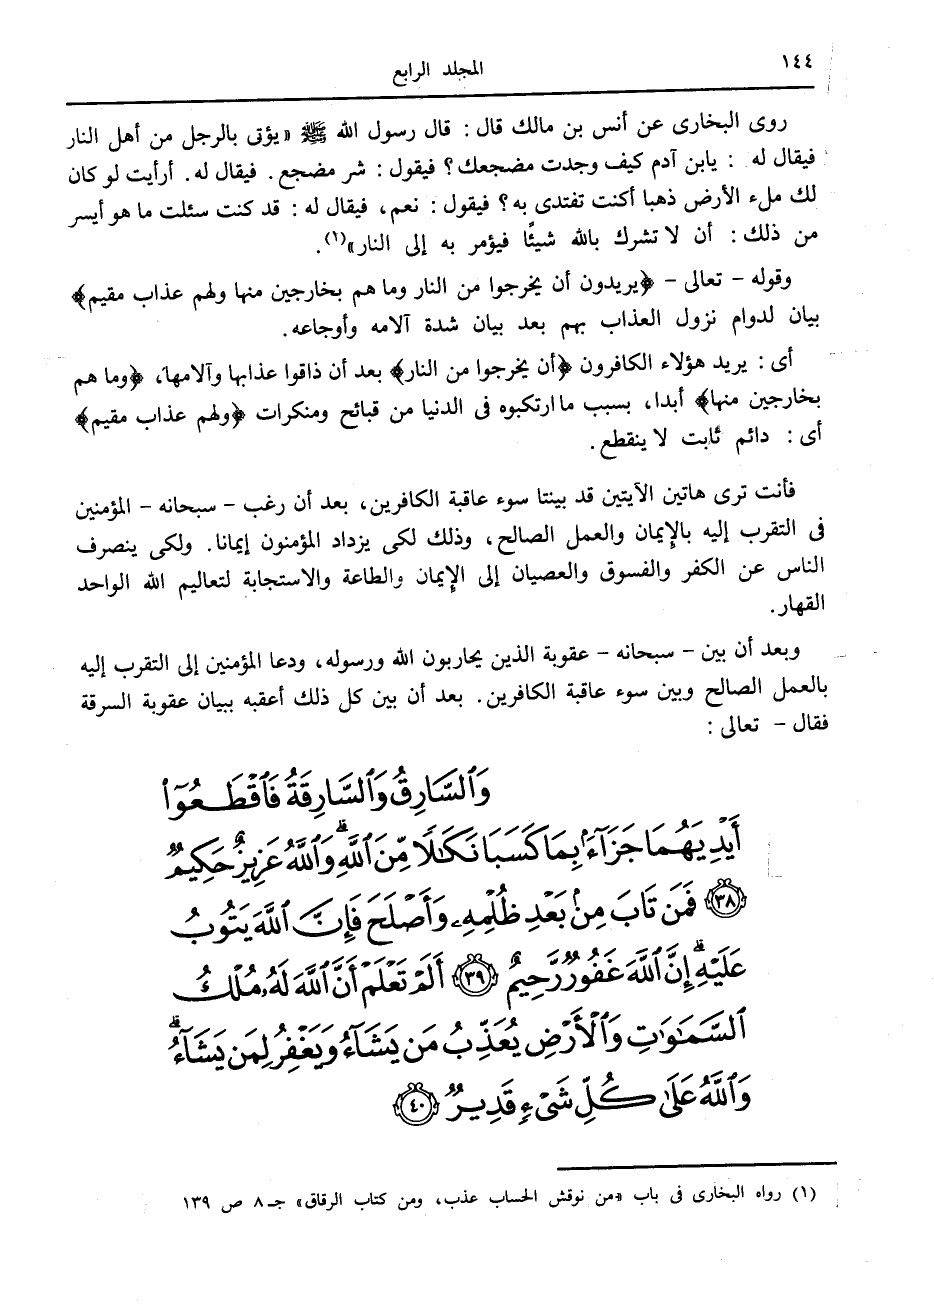 ١٤٤
المجلد الرابع
روى البخارى عن أنس بن مالك قال : قال رسول الله ﷺ «يؤتى بالرجل من أهل النار
فيقال له : يابن آدم كيف وجدت مضجعك ؟ فيقول : شر مضجع . فيقال له . أرأيت لو كان
لك ملء الأرض ذهبا أكنت تفتدى به ؟ فيقول : نعم ، فيقال له : قد كنت سئلت ما هو أيسر
من ذلك : أن لا تشرك بالله شيئًا فيؤمر به إلى النار»(١).
وقوله - تعالى - ﴿يريدون أن يخرجوا من النار وما هم بخارجين منها ولهم عذاب مقيم﴾
بيان لدوام نزول العذاب بهم بعد بيان شدة آلامه وأوجاعه .
أى : يريد هؤلاء الكافرون ﴿أن يخرجوا من النار﴾ بعد أن ذاقوا عذابها وآلامها ، ﴿وما هم
بخارجين منها﴾ أبدا ، بسبب ما ارتكبوه فى الدنيا من قبائح ومنكرات ﴿ولهم عذاب مقيم﴾
أى : دائم ثابت لا ينقطع .
فأنت ترى هاتين الآيتين قد بينتا سوء عاقبة الكافرين ، بعد أن رغب - سبحانه - المؤمنين
فى التقرب إليه بالإيمان والعمل الصالح ، وذلك لكى يزداد المؤمنون إيمانا . ولكى ينصرف
الناس عن الكفر والفسوق والعصيان إلى الإيمان والطاعة والاستجابة لتعاليم الله الواحد
القهار .
وبعد أن بين - سبحانه - عقوبة الذين يحاربون الله ورسوله ، ودعا المؤمنين إلى التقرب إليه
بالعمل الصالح وبين سوء عاقبة الكافرين . بعد أن بين كل ذلك أعقبه ببيان عقوبة السرقة
فقال - تعالى :
وَٱلسَّارِقُ وَٱلسَّارِقَةُ فَٱقۡطَعُوٓاْ
أَيۡدِيَهُمَا جَزَآءَۢ بِمَا كَسَبَا نَكَٰلٗا مِّنَ ٱللَّهِۗ وَٱللَّهُ عَزِيزٌ حَكِيمٞ
٣٨ فَمَن تَابَ مِنۢ بَعۡدِ ظُلۡمِهِۦ وَأَصۡلَحَ فَإِنَّ ٱللَّهَ يَتُوبُ
عَلَيۡهِۗ إِنَّ ٱللَّهَ غَفُورٞ رَّحِيمٌ ٣٩ أَلَمۡ تَعۡلَمۡ أَنَّ ٱللَّهَ لَهُۥ مُلۡكُ
ٱلسَّمَٰوَٰتِ وَٱلۡأَرۡضِ يُعَذِّبُ مَن يَشَآءُ وَيَغۡفِرُ لِمَن يَشَآءُۗ
وَٱللَّهُ عَلَىٰ كُلِّ شَيۡءٖ قَدِيرٞ ٤٠
(١) رواه البخارى فى باب «من نوقش الحساب عذب ، ومن كتاب الرقاق» جـ ٨ ص ١٣٩